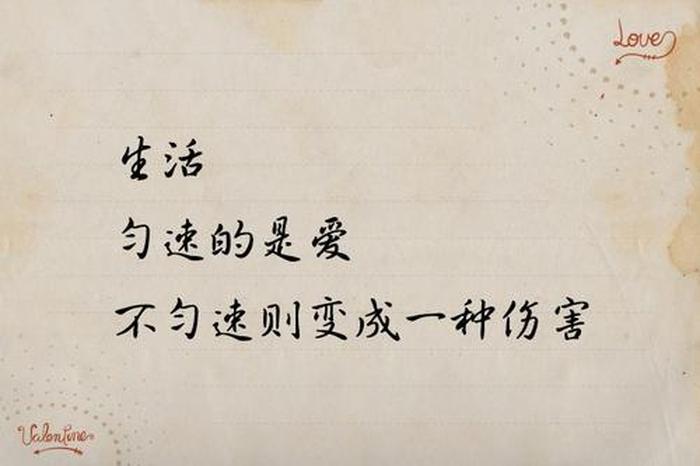 Love
生活
匀速的是爱
不匀速则变成一种伤害
Valentine